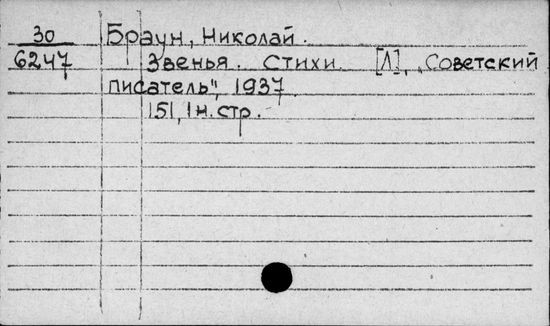 30 Браун, Николай.
6247 Звенья. Стихи. [Л], „Советский
писатель", 1937.
151, 1 н. стр.